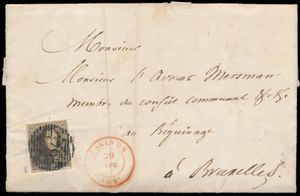 Monsieur
Monsieur l'Avocat Mersman
membre du conseil communal &c &c
au Béguinage
à Bruxelles.
MALINES